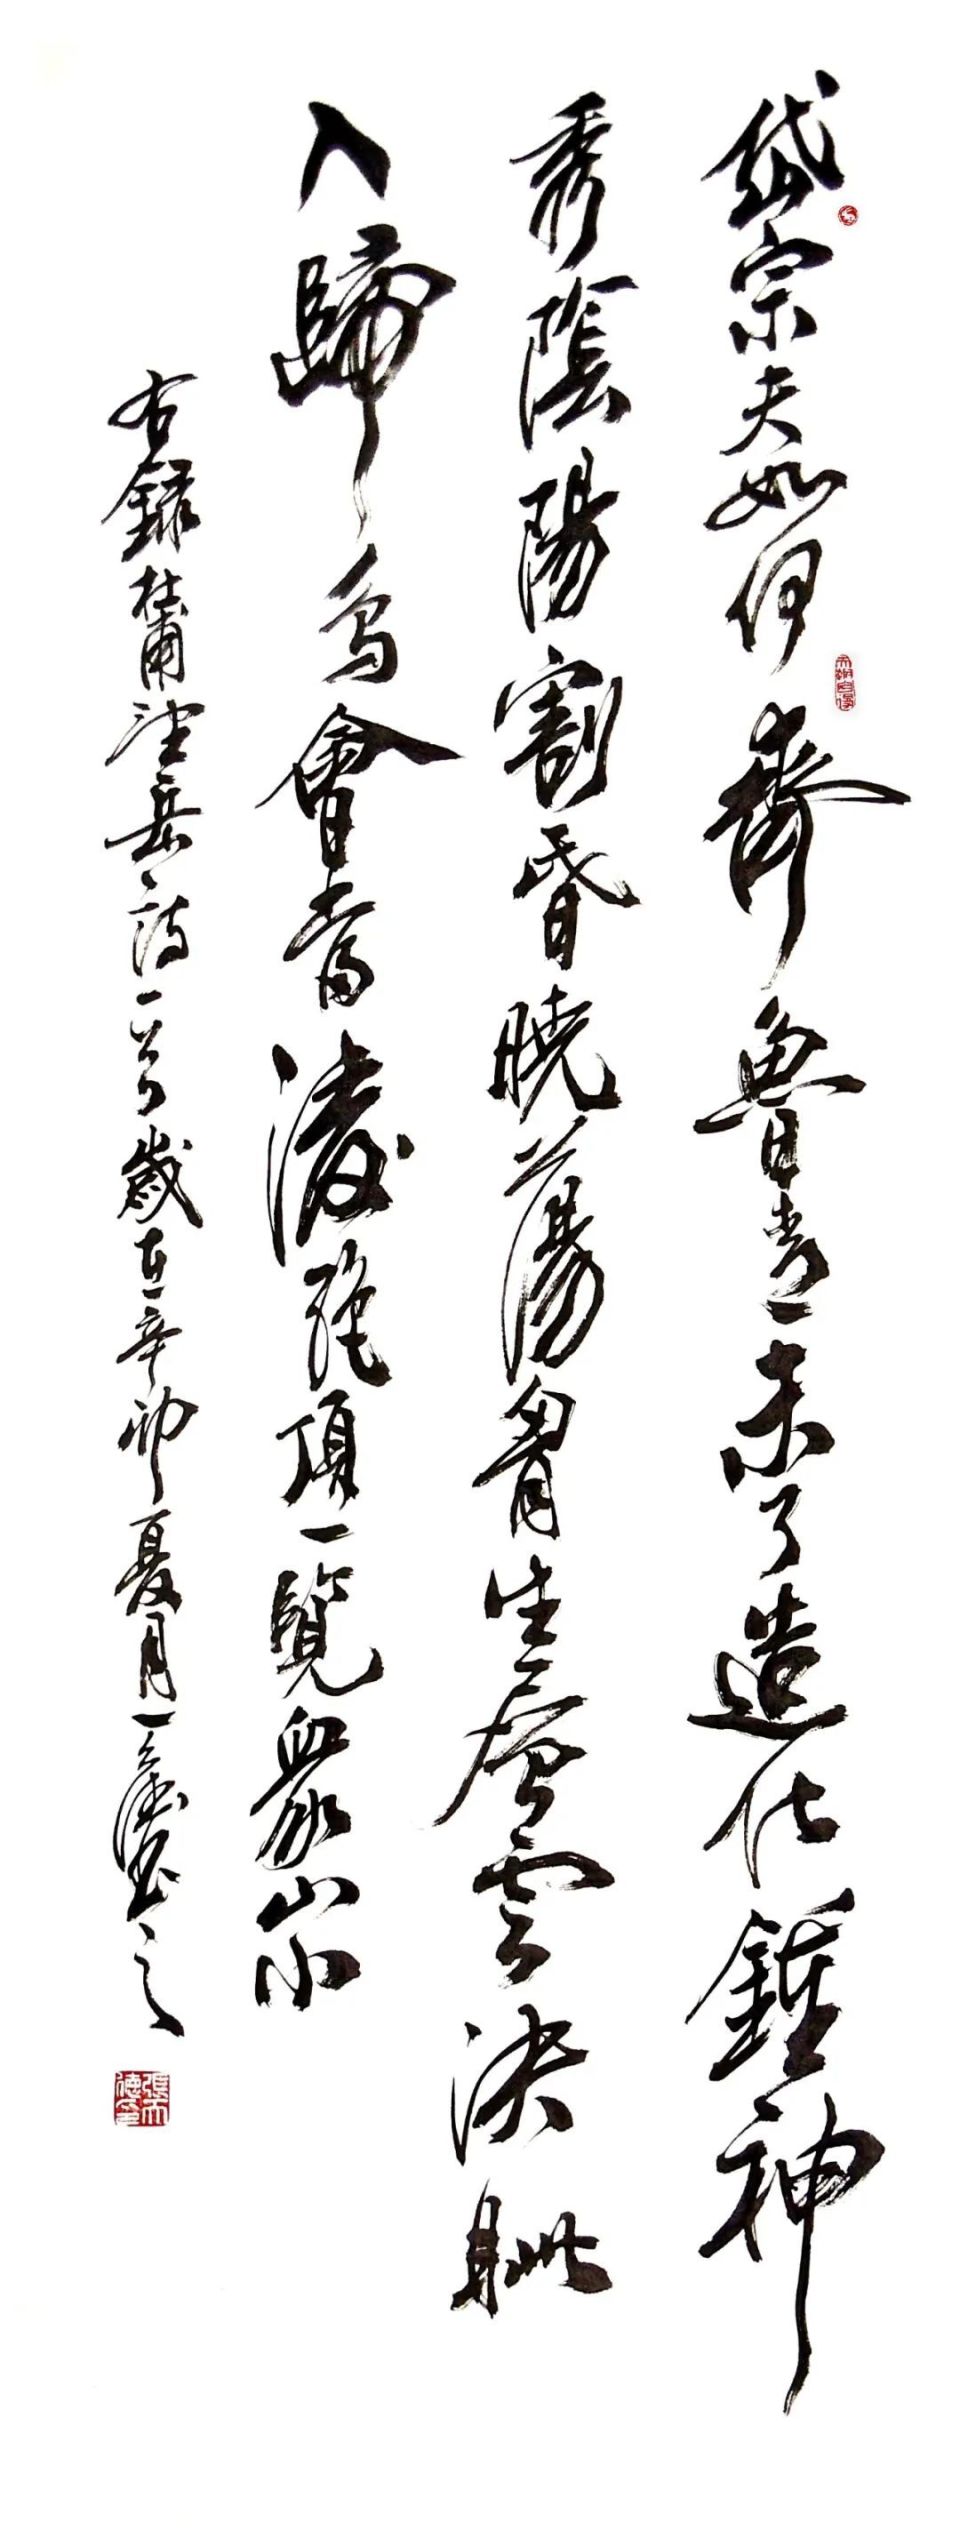 岱宗夫如何齊魯青未了造化鍾神
秀陰陽割昏曉蕩胷生層雲決眦
入歸鳥會當淩絕頂一覽眾山小
右錄杜甫望岳詩一首歲在辛卯夏月天德書之
張天德印